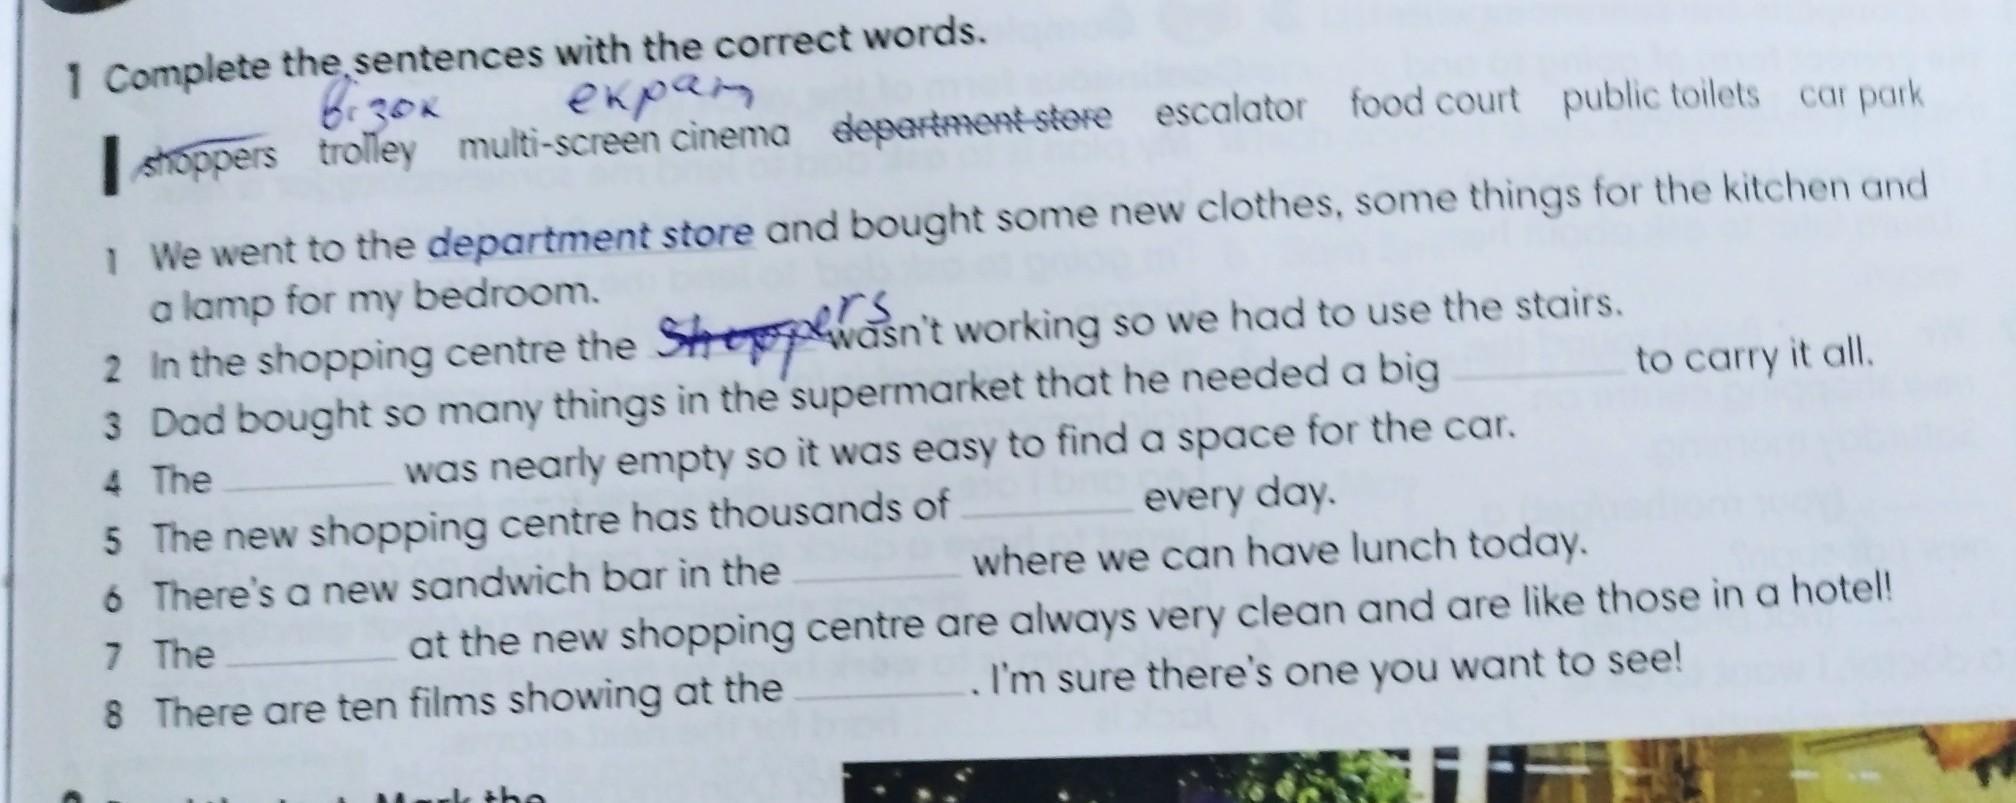 1 Complete the sentences with the correct words.
візок екран
shoppers trolley multi-screen cinema department store escalator food court public toilets car park
1 We went to the department store and bought some new clothes, some things for the kitchen and
a lamp for my bedroom.
2 In the shopping centre the Shoppers wasn't working so we had to use the stairs.
3 Dad bought so many things in the supermarket that he needed a big ________ to carry it all.
4 The ________ was nearly empty so it was easy to find a space for the car.
5 The new shopping centre has thousands of ________ every day.
6 There's a new sandwich bar in the ________ where we can have lunch today.
7 The ________ at the new shopping centre are always very clean and are like those in a hotel!
8 There are ten films showing at the ________. I'm sure there's one you want to see!
Mark the